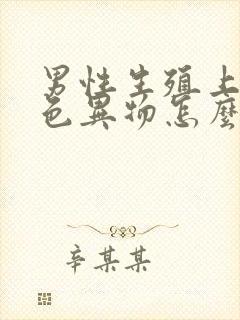 男性生殖上
色異物怎麼
辛某某